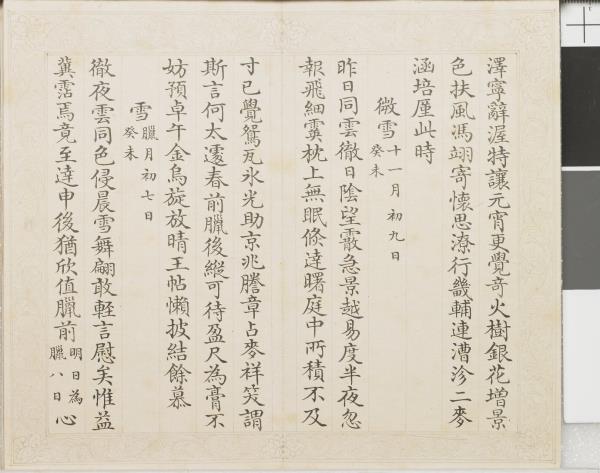 澤寧辭渥特讓元宵更覺奇火樹銀花增景
色扶風馮翊寄懷思潦行畿輔連漕沴二麥
涵培厪此時
微雪十一月初九日癸未
昨日同雲徹日陰望霰急景越易度半夜忽
報飛細霙枕上無眠倐達曙庭中所積不及
寸已覺鴛瓦氷光助京兆謄章占麥祥笑謂
斯言何太遽春前臘後縱可待盈尺為膏不
妨預卓午金烏旋放晴王帖懶披結餘慕
雪臘月初七日癸未
徹夜雲同色侵晨雪舞翩敢輕言慰矣惟益
冀霑焉竟至達申後猶欣值臘前明日為臘八日心